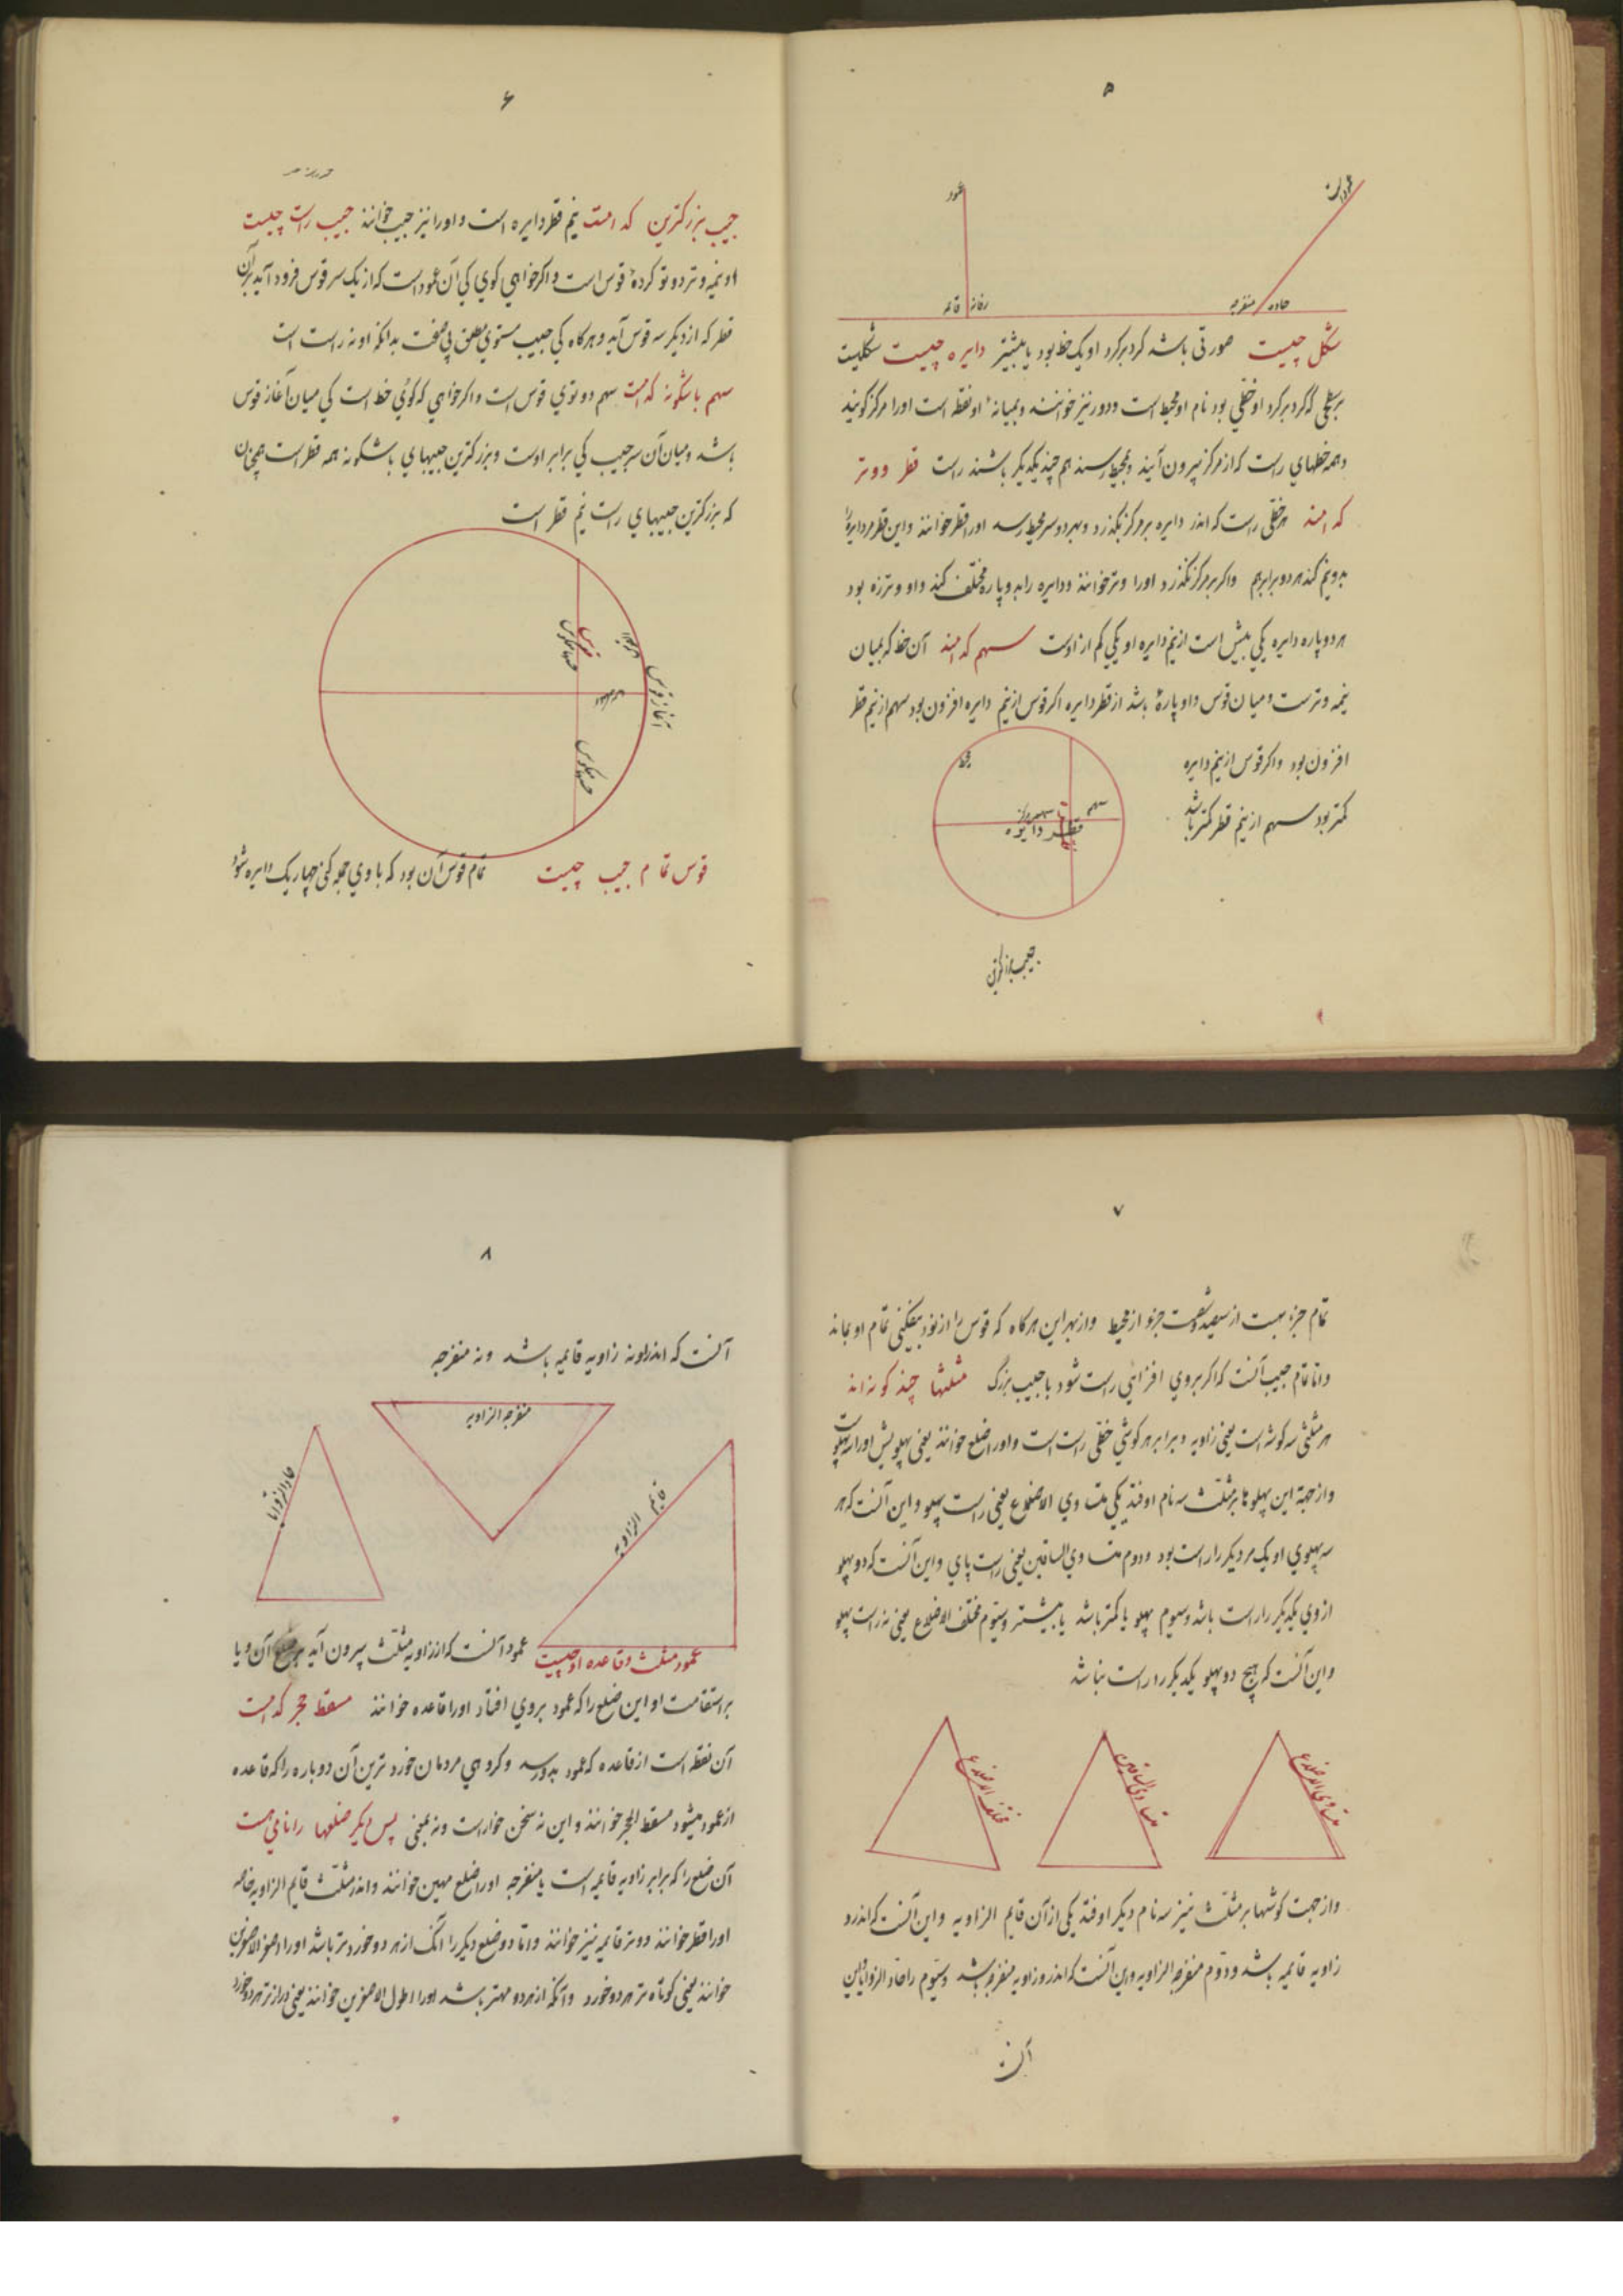 ۵
عمود
قائمه
قائمه
حاده
منفرجه
شکل چیست صورتی باشد کرد برکرد او یک خط بود یا بیشتر دایره چیست شکلیست
بر سطحی که کرد برکرد او خطی بود نام او محیط است ودور نیز خوانند وبمیانهٔ او نقطه است اورا مرکز کویند
وهمه خطهاي راست که از مرکز بیرون آیند وبمحیط رسند هم چند یکدیکر باشند راست قطر ووتر
که امند هر خطی راست که اندر دایره بر مرکز بکذرد وبهر دو سر محیط رسد اورا قطر خوانند واین قطر مر دایره را
بدو نیم کند هر دو برابر هم واکر بر مرکز نکذرد اورا وتر خوانند ودایره را بدو پاره مختلف کند واو وتر زه بود
هر دو پاره دایره یکی بیش است از نیم دایره او یکی کم از اوست سهم که امند آن خط که بمیان
نیمه وترست ومیان قوس واو پارهٔ باشد از قطر دایره اکر قوس از نیم دایره افزون بود سهم از نیم قطر
افزون بود واکر قوس از نیم دایره
کمتر بود سهم از نیم قطر کمتر باشد
محیط
سهم
مرکز
قطر دایره
جیب بزرکترین
۶
جیب بزرکترین که امست نیم قطر دایره است واورا نیز جیب خوانند جیب راست چیست
او نیمه وتر دو تو کردهٔ قوس است واکر خواهي کوي کی آن عمود است که از یک سر قوس فرود آید بر آن
قطر که از دیکر سر قوس آید وهرکاه کی جیب مستوي مطلق بی صفت بدانکه او نه راست است
سهم باشکونه که امست سهم دو توي قوس است واکر خواهي که کوئي خط است کی میان آغاز قوس
باشد ومیان آن سر جیب کی برابر اوست وبزرکترین جیبهاي باشکونه همه قطر است همچنان
که بزرکترین جیبهاي راست نیم قطر است
آغاز قوس
قوس تمام جیب چیست تمام قوس آن بود که با وي جمله کنی چهار یک دایره شود
۷
تمام جزءهست از سیصد وشصت جزو از محیط واز بهر این هرکاه که قوس را از نود بیفکنی تمام او بماند
واما تمام جیب آنست که اکر بروي افزائي راست شود با جیب بزرک مثلثها چند کونه اند
هر مثلثی سه کوشه است یعنی زاویه وبرابر هر کوشي خطی راست است واورا ضلع خوانند یعنی پهلو پس اورا سه پهلوست
واز جهة این پهلوها بر مثلث سه نام اوفتد یکی متساوي الاضلاع یعنی راست پهلو واین آنست که هر
سه پهلوي او یک مر دیکر را راست بود ودوم متساوي الساقین یعنی راست پاي واین آنست که دو پهلو
از وي یکدیکر را راست باشد وسیوم پهلو یا کمتر باشد یا بیشتر وسیّوم مختلف الاضلاع یعنی نه راست پهلو
واین آنست که هیچ دو پهلو یکدیکر را راست نباشد
متساوي الاضلاع
متساوي الساقین
مختلف الاضلاع
واز جهت کوشها بر مثلث نیز سه نام دیکر اوفتد یکی از آن قایم الزاویه واین آنست که اندرو
زاویه قایمه باشد ودوّم منفرجه الزاویه واین آنست که اندرو زاویه منفرجه باشد وسیّوم را حاد الزوایا واین
آنست
۸
آنست که اندراو نه زاویه قایمه باشد ونه منفرجه
منفرجه الزاویه
حاد الزوایا
قایم الزاویه
عمود مثلث وقاعده او چیست عمود آنست که از زاویه مثلث بیرون آید بر ضلع آن ویا
بر استقامت او این ضلع را که عمود بروي افتاد اورا قاعده خوانند مسقط حجر که امست
آن نقطه است از قاعده که عمود بدو رسد وکروهي مردمان خورد ترین آن دوپاره را که قاعده
از عمود میشود مسقط الحجر خوانند واین نه سخن خوارست ونه بمعنی پس دیکر ضلعها را نامي هست
آن ضلع را که برابر زاویه قایمه است یا منفرجه اورا ضلع مهین خوانند واندر مثلث قایم الزاویه خاصه
اورا قطر خوانند ووتر قایمه نیز خوانند واما دو ضلع دیکر را آنک از هر دو خورد تر باشد اورا اصغر الاصغرین
خوانند یعنی کوتاه تر هر دو خورد وآنکه از هر دو مهتر باشد اورا اطول الاصغرین خوانند یعنی دراز تر هر دو خورد